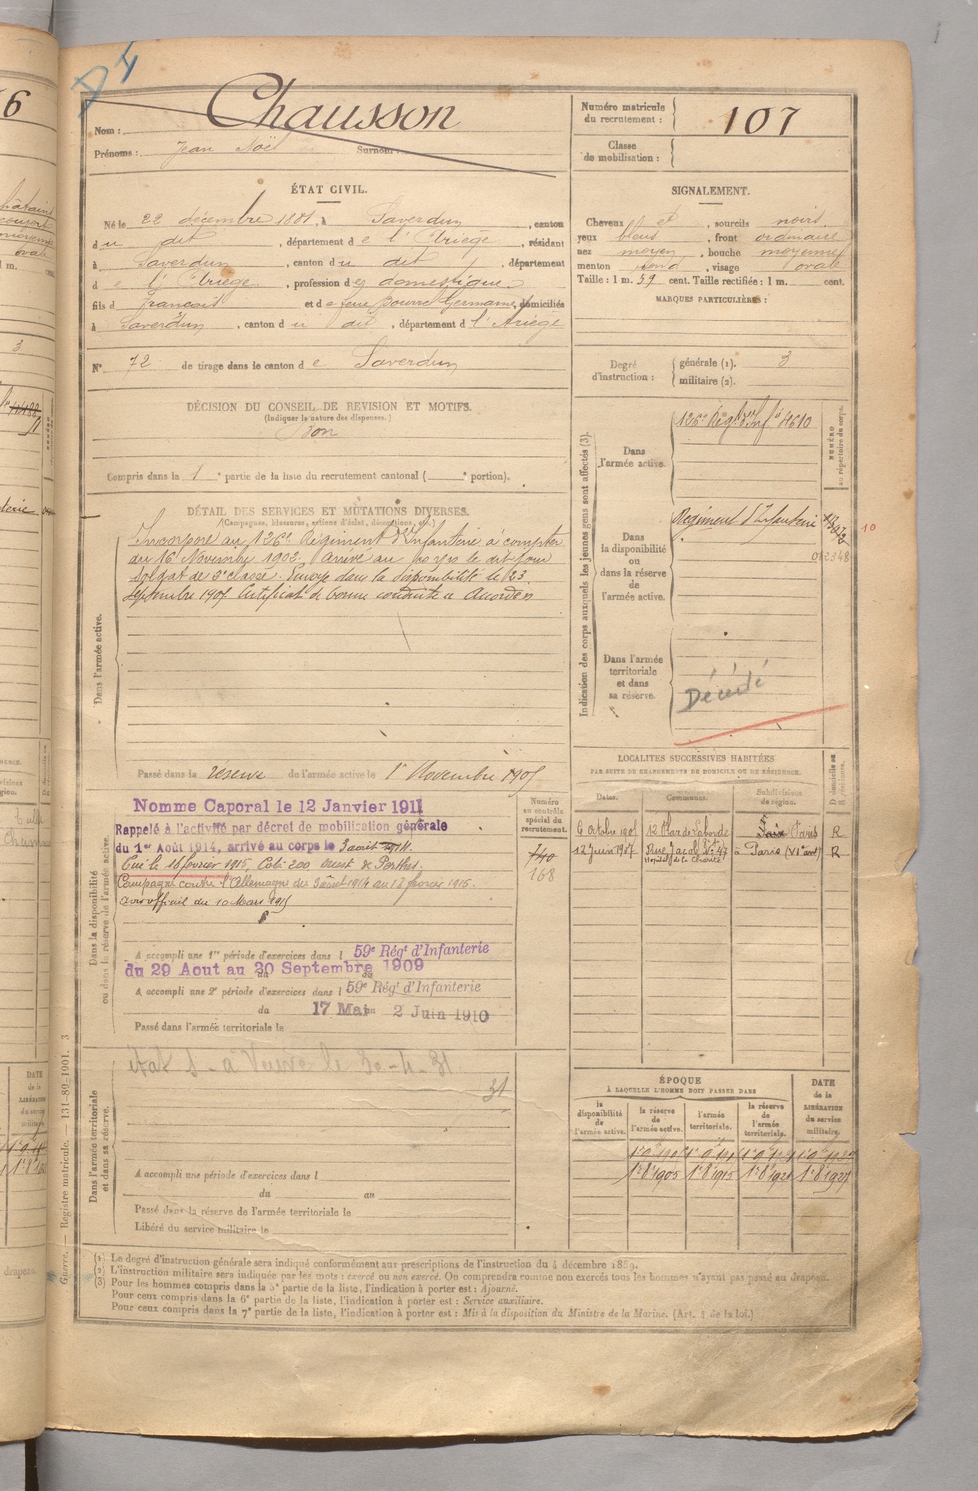 D4
Nom : Chausson
Prénoms : Jean Noël Surnom :
Numéro matricule du recrutement : 107
Classe de mobilisation :
ÉTAT CIVIL.
Né le 22 décembre 1881, à Saverdun, canton
du dit, département de l'Ariège, résidant
à Saverdun, canton du dit, département
de l'Ariège, profession de domestique,
fils de François et de feue Bourre Germaine, domiciliés
à Saverdun, canton du dit, département de l'Ariège
N° 72 de tirage dans le canton de Saverdun
SIGNALEMENT.
Cheveux et, sourcils noirs
yeux bleus, front ordinaire
nez moyen, bouche moyenne
menton rond, visage ovale
Taille : 1 m. 59 cent. Taille rectifiée : 1 m. cent.
MARQUES PARTICULIÈRES :
Degré d'instruction : générale (1). 3
militaire (2).
DÉCISION DU CONSEIL DE REVISION ET MOTIFS.
(Indiquer la nature des dispenses.)
Bon
Compris dans la 1e partie de la liste du recrutement cantonal ( e portion).
DÉTAIL DES SERVICES ET MUTATIONS DIVERSES.
(Campagnes, blessures, actions d'éclat, décorations, etc.)
Dans l'armée active.
Incorporé au 126e Régiment d'Infanterie à compter
du 16 Novembre 1902. Arrivé au corps le dit jour
soldat de 2e classe. Envoyé dans la disponibilité le 23
septembre 1905 Certificat de bonne conduite Accordé
Passé dans la réserve de l'armée active le 1er Novembre 1905
Indication des corps auxquels les jeunes gens sont affectés (3).
NUMÉRO au répertoire du corps.
Dans l'armée active.
126e Régt d'Inf à 4610
Dans la disponibilité ou dans la réserve de l'armée active.
Régiment d'Infanterie
10
012348
Dans l'armée territoriale et dans sa réserve.
Décédé
LOCALITÉS SUCCESSIVES HABITÉES
PAR SUITE DE CHANGEMENTS DE DOMICILE OU DE RÉSIDENCE.
Dates. Communes. Subdivisions de région. D domicile ou R résidence.
6 Octobre 1905 12 Place Laborde Paris R
12 Juin 1907 Rue Jacob N° 47 à Paris (VIe arrt) R
Hôpital de la Charité
Dans la disponibilité ou dans la réserve de l'armée active.
Numéro au contrôle spécial du recrutement.
740
168
Nommé Caporal le 12 Janvier 1911
Rappelé à l'activité par décret de mobilisation générale
du 1er Août 1914, arrivé au corps le 3 août 1914.
Tué le 18 février 1915, Cote 200 Ouest de Perthes
Campagne contre l'Allemagne du 3 août 1914 au 18 février 1915.
Avis officiel du 10 Mars 1915
A accompli une 1re période d'exercices dans l 59e Régt d'Infanterie
du 29 Aout au 20 Septembre 1909
A accompli une 2e période d'exercices dans l 59e Régt d'Infanterie
du 17 Mai au 2 Juin 1910
Passé dans l'armée territoriale le
Dans l'armée territoriale et dans sa réserve.
état à Veuve le 30-4-31
31
A accompli une période d'exercices dans l
du au
Passé dans la réserve de l'armée territoriale le
Libéré du service militaire le
ÉPOQUE
À LAQUELLE L'HOMME DOIT PASSER DANS
la disponibilité de l'armée active. la réserve de l'armée active. l'armée territoriale. la réserve de l'armée territoriale.
DATE de la LIBÉRATION du service militaire.
1er 8bre 1905 1er 8bre 1915 1er 8bre 1921 1er 8bre 1927
(1) Le degré d'instruction générale sera indiqué conformément aux prescriptions de l'instruction du 4 décembre 1889.
(2) L'instruction militaire sera indiquée par les mots : exercé ou non exercé. On comprendra comme non exercés tous les hommes n'ayant pas passé au drapeau.
(3) Pour les hommes compris dans la 5e partie de la liste, l'indication à porter est : Ajourné.
Pour ceux compris dans la 6e partie de la liste, l'indication à porter est : Service auxiliaire.
Pour ceux compris dans la 7e partie de la liste, l'indication à porter est : Mis à la disposition du Ministre de la Marine. (Art. 4 de la loi.)
Guerre. — Registre matricule. — 131-89-1901. 3